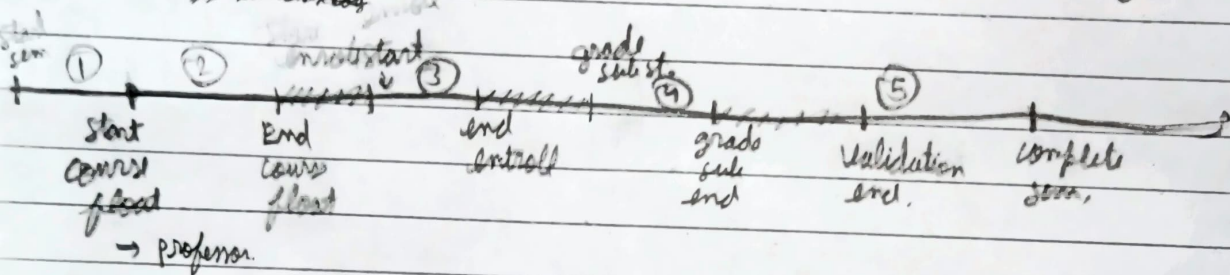 start
sem
① ② enroll start ③ grade
sub st. ④ ⑤
Start
course
float
End
cours
float
end
entroll
grado
sub
end
Validation
end.
complete
sem.
→ professor.